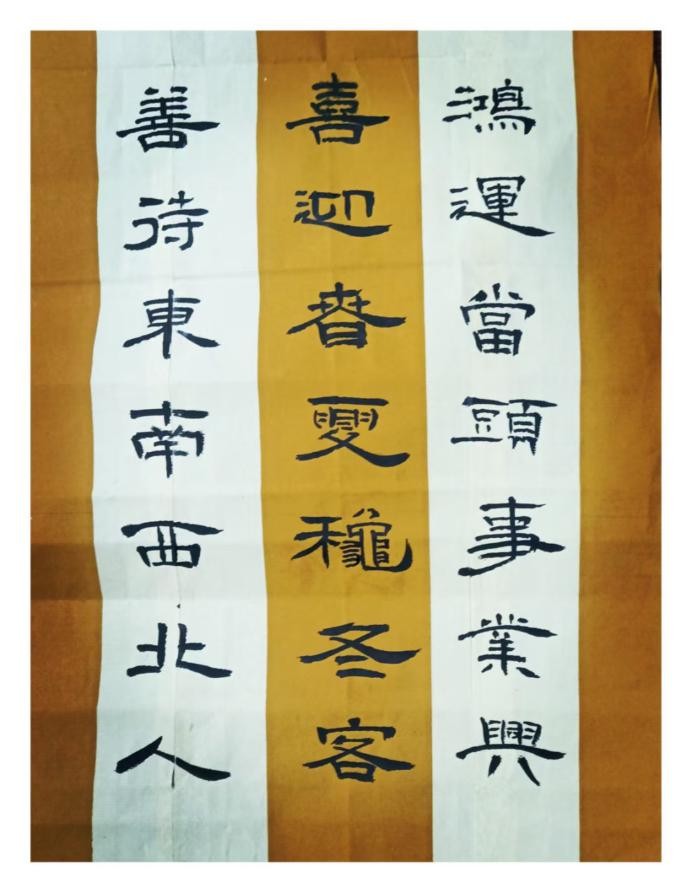 鴻運當頭事業興
喜迎春夏穐冬客
善待東南西北人